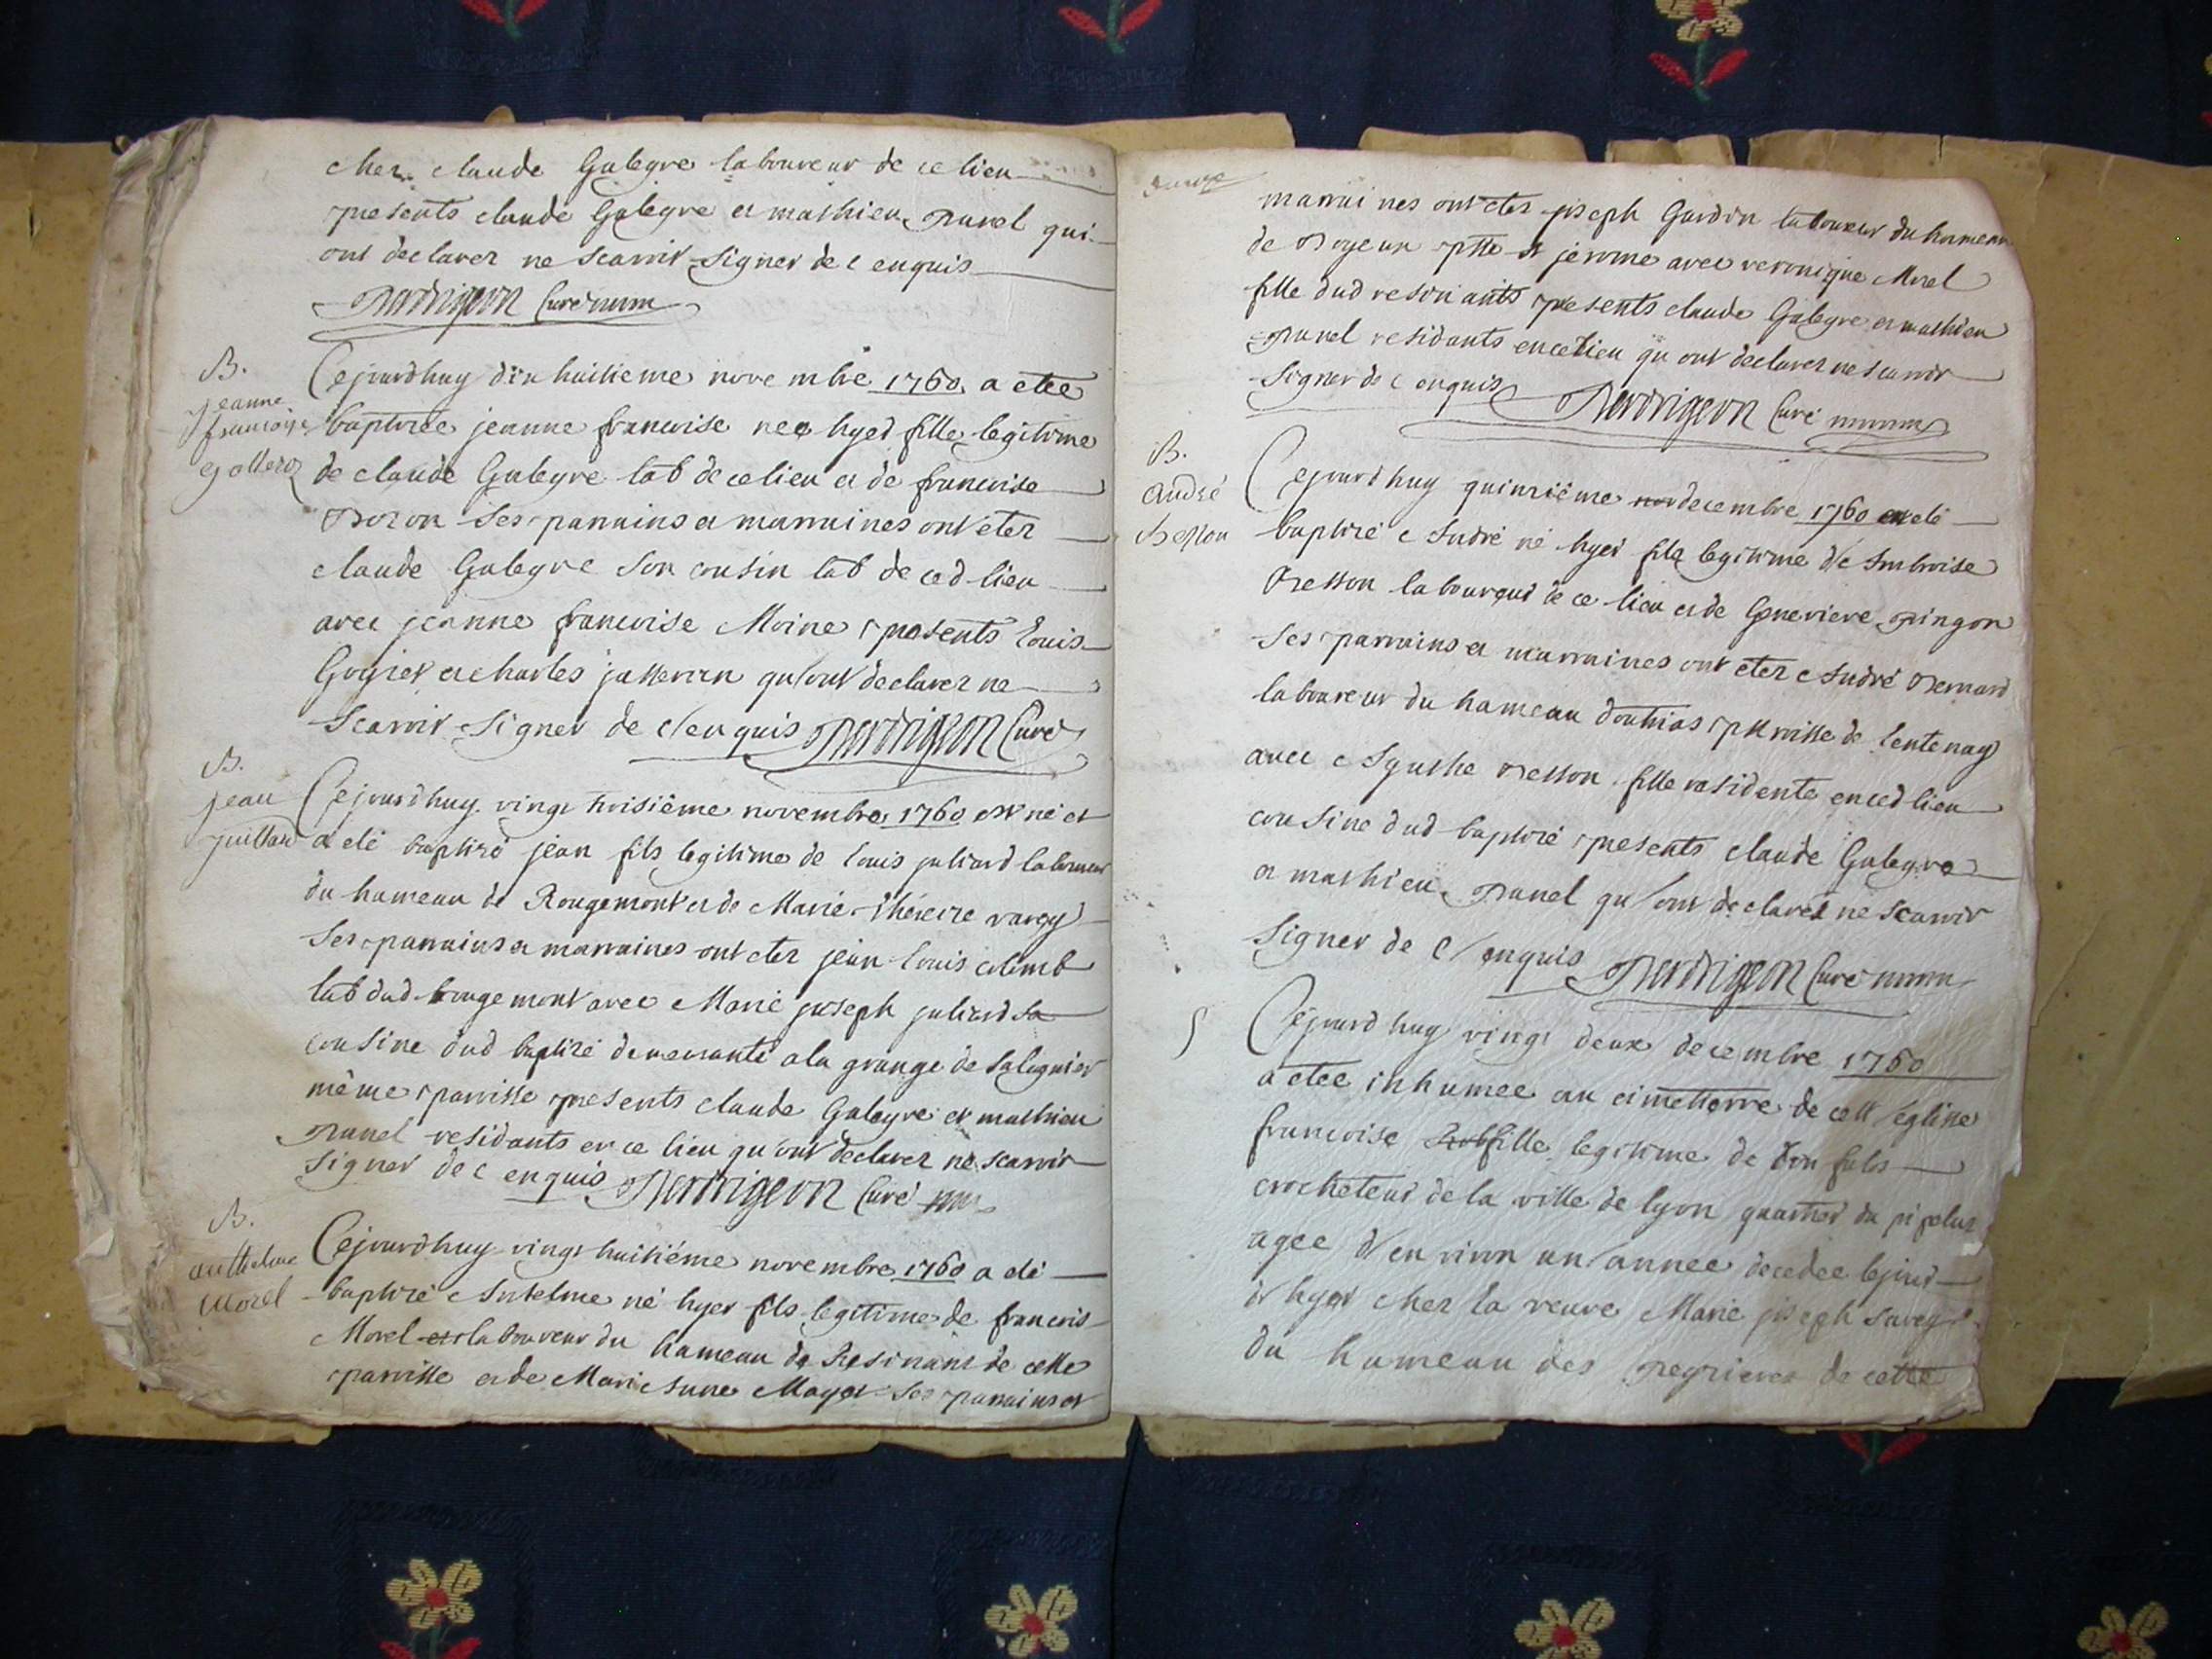 chez claude Galeyre laboureur de ce lieu
presents claude Galeyre et mathieu Panel qui
ont declarez ne scavoir signer de c enquis
Perdrigeon Curé
B.
jeanne
francoise
Cejourdhuy dix huitieme novembre 1760 a etee
baptizée jeanne francoise nee hyer fille legitime
de claude Galeyre lab de ce lieu et de francoise
Bozon Ses parrains et marraines ont etez
claude Galeyre son cousin lab de ced lieu
avec jeanne francoise Moine presents Louis
Goyiet et charles jasserin qu'ont declarez ne
scavoir signer de c/enquis Perdrigeon Curé
B.
jean
juillard
Cejourdhuy vingt troisiéme novembre 1760 est né et
a eté baptizé jean fils legitime de Louis juliard laboureur
du hameau de Rougemont et de Marie thérèze varey
Ses parrains et marraines ont etez jean Louis colomb
lab dud Rougemont avec Marie joseph juliard sa
cousine dud baptizé demeurante a la grange de
même parroisse presents claude Galeyre et mathieu
Panel residants en ce lieu qu'ont declarez ne scavoir
signer de c enquis Perdrigeon Curé
B.
anthelme
morel
Cejourdhuy vingt huitiéme novembre 1760 a eté
baptizé Antelme né hyer fils legitime de francois
Morel laboureur du hameau de Resinans de cette
parroisse et de Marie Anne Mayet Ses parrains et
marraines ont etez joseph Gardon laboureur du hameau
de Boyeux psse St jerome avec veronique Morel
fille dud resinants presents claude Galeyre et mathieu
Panel residants en ce lieu qu ont declarez ne scavoir
signer de c enquis Perdrigeon Curé
B.
andré
besson
Cejourdhuy quinziéme nov decembre 1760 a eté
baptizé André né hyer fils legitime de Ambroise
Besson laboureur de ce lieu et de Genevieve pingon
Ses parrains et marraines ont etez André Bernard
laboureur du hameau d'outrias parroisse de lentenay
avec Agathe Besson fille residente en ced lieu
cousine dud baptizé presents claude Galeyre
et mathieu Panel qu'ont declarez ne scavoir
signer de c/enquis Perdrigeon Curé
S
Cejourdhuy vingt deux decembre 1760
a etee inhumee au cimettierre de cett'eglise
francoise fille legitime de
crocheteur de la ville de lyon quartier du
agee d'environ un'annee decedee lejourd
d'hyer chez la veuve Marie joseph Savey
du hameau des de cette